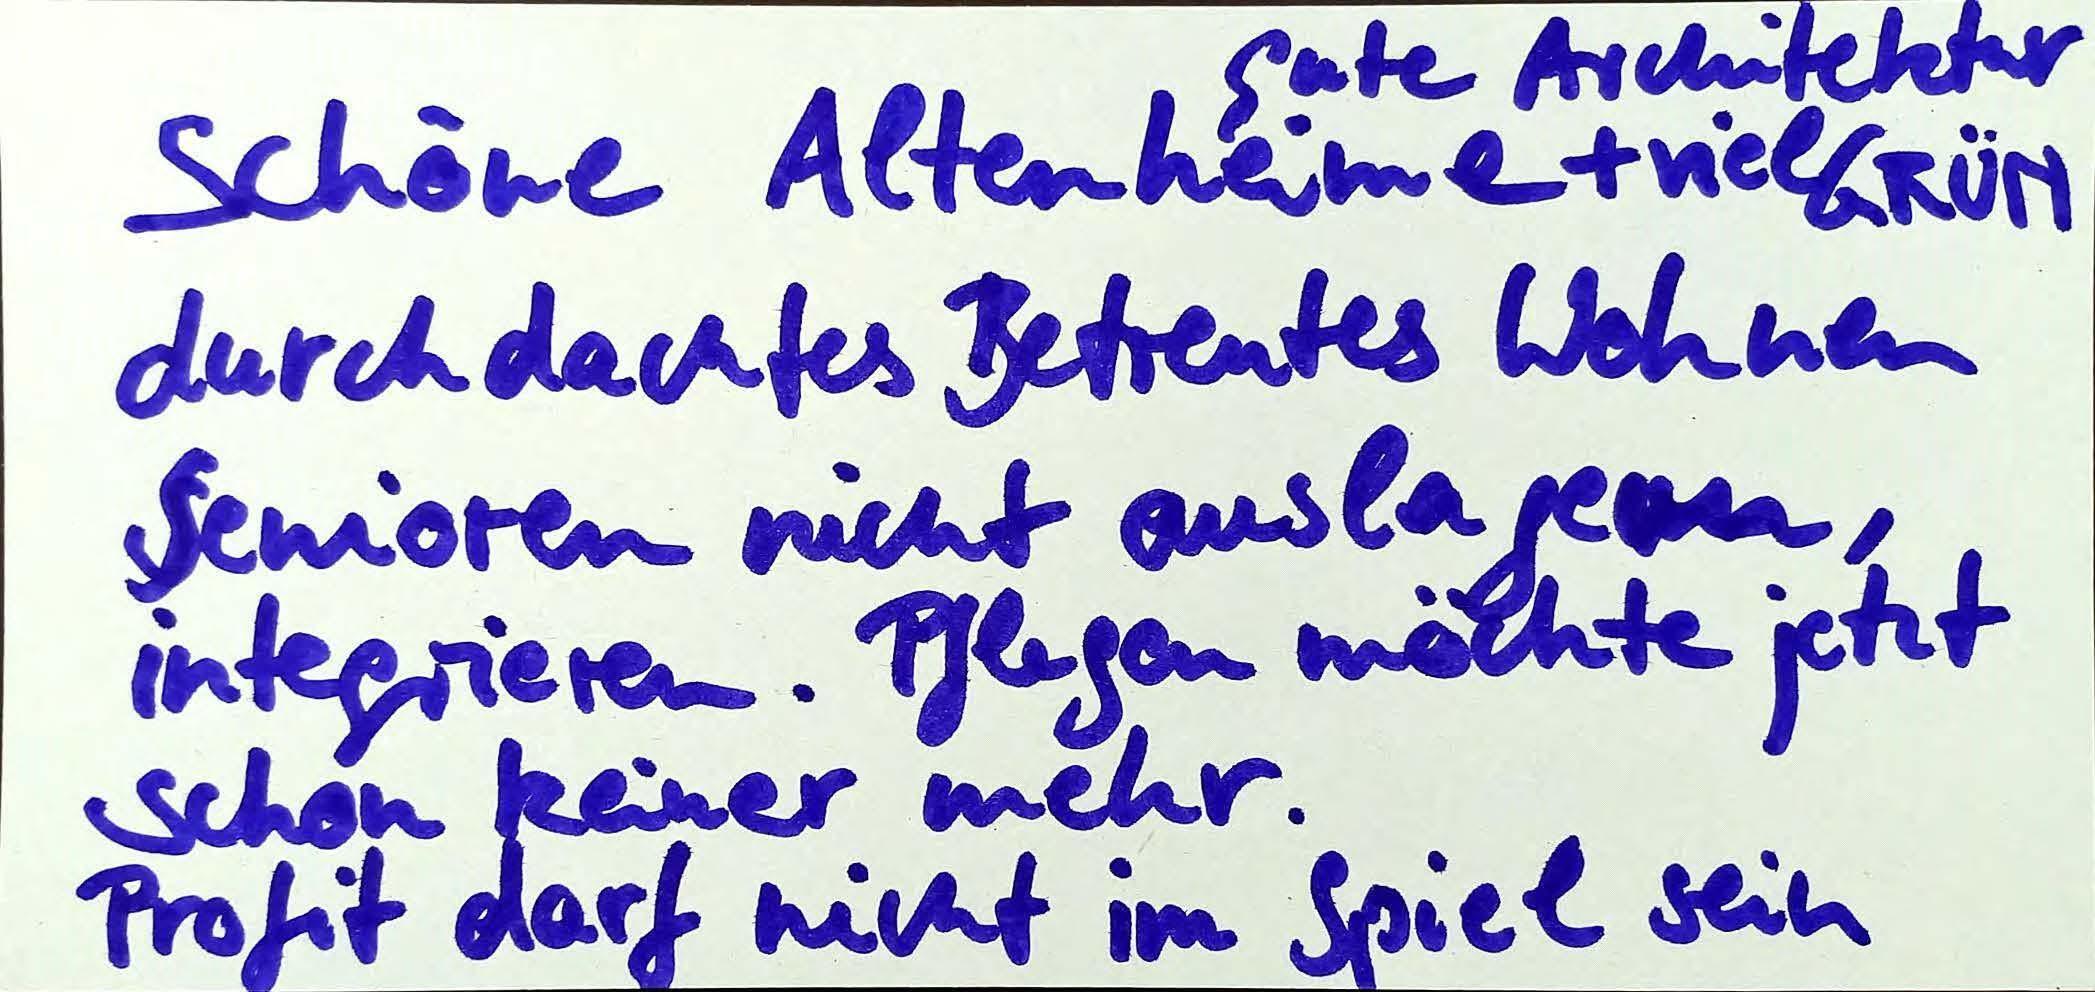 gute Architektur
Schöne Altenheime + viel GRÜN
durchdachtes Betreutes Wohnen
Senioren nicht auslagern,
integrieren. Pflegen möchte jetzt
schon keiner mehr.
Profit darf nicht im Spiel sein